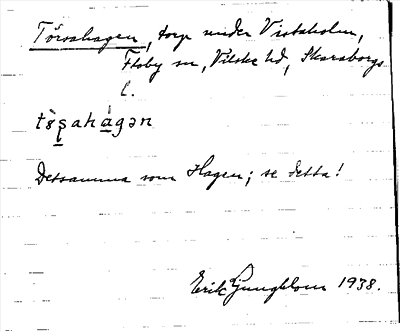 Törsahagen, torp under Vistaholm,
Floby sn, Vilske hd, Skaraborgs
l.
tö̀s̠ahágən
Detsamma som Hagen; se detta!
Erik Ljungblom 1938.